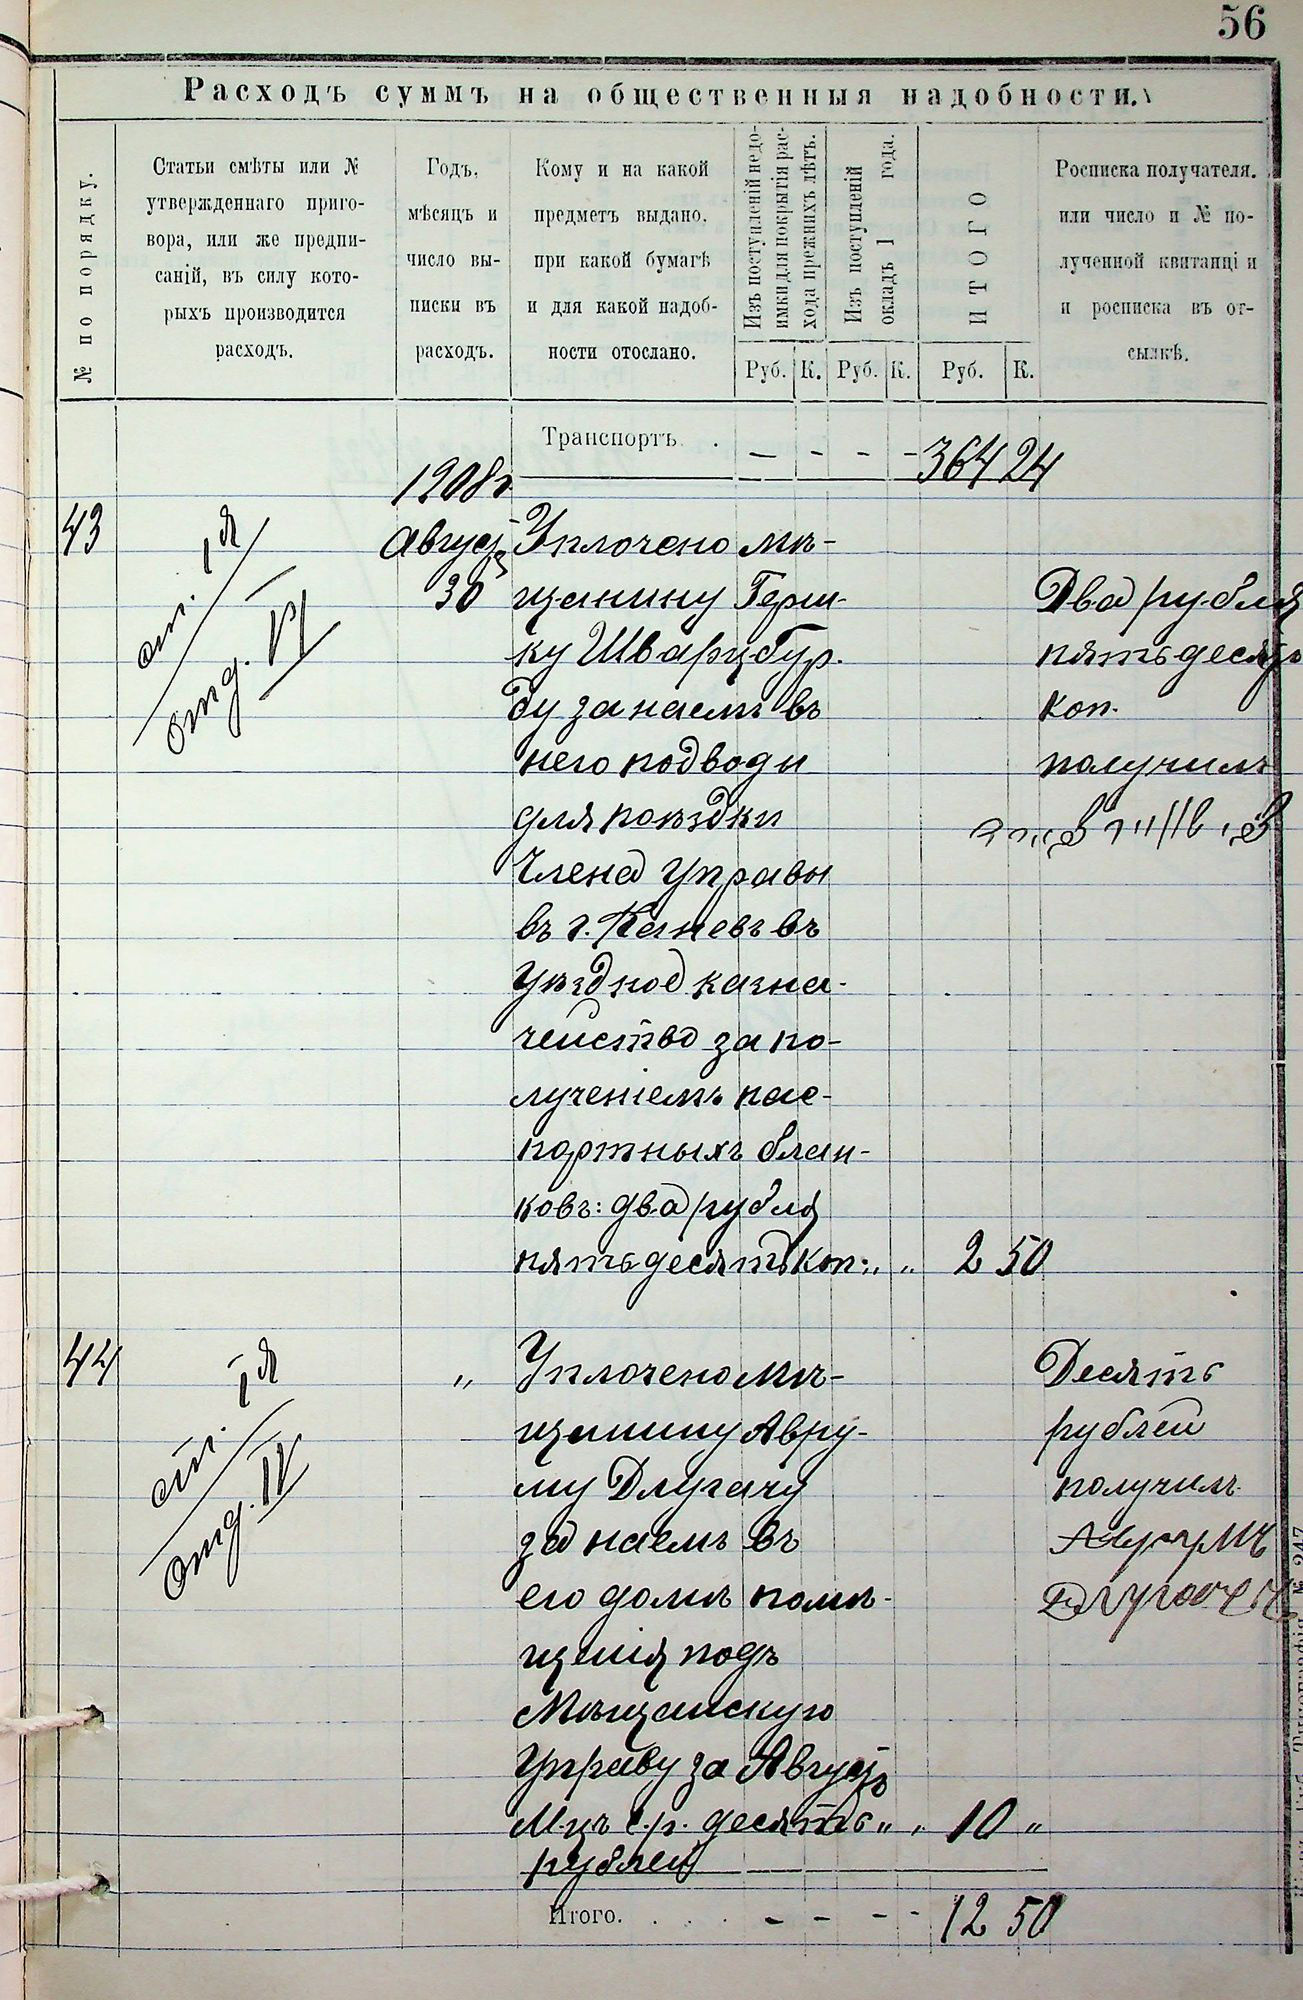 56
Расходъ суммъ на общественныя надобности.
№ по порядку.
Статьи смѣты или №
утвержденнаго приго-
вора, или же предпи-
саній, въ силу кото-
рыхъ производится
расходъ.
Годъ,
мѣсяцъ и
число вы-
писки въ
расходъ.
Кому и на какой
предметъ выдано,
при какой бумагѣ
и для какой надоб-
ности отослано.
Изъ поступленій недо-
имки для покрытія рас-
хода прежнихъ лѣтъ.
Руб. К.
Изъ поступленій
окладъ 1 года.
Руб. К.
ИТОГО
Руб. К.
Росписка получателя,
или число и № по-
лученной квитанціи
и росписка въ от-
сылкѣ.
Транспортъ . — - - - 364 24
43
ст. 1я
отд. VI
1908 г.
Августъ
30
Уплочено мѣ-
щанину Герш-
ку Шварцбур-
ду за наемъ въ
него подводы
для поѣздки
Члена Управы
въ г. Каневъ въ
Уѣздное казна-
чейство за по-
лученіемъ пас-
портныхъ блан-
ковъ: два рубля
пятьдесятъ коп. „ „ 2 50
Два рубля
пятьдесятъ
коп.
получилъ
44
ст. 1я
отд. IV
„
Уплочено мѣ-
щанину Авру-
му Длугачу
за наемъ въ
его домѣ помѣ-
щенія подъ
Мѣщанскую
Управу за Августъ
М-цъ с.г. десять „ „ 10 „
рублей
Десять
рублей
получилъ
Аврумъ
Длугачъ
Итого. . . . - - - - 12 50